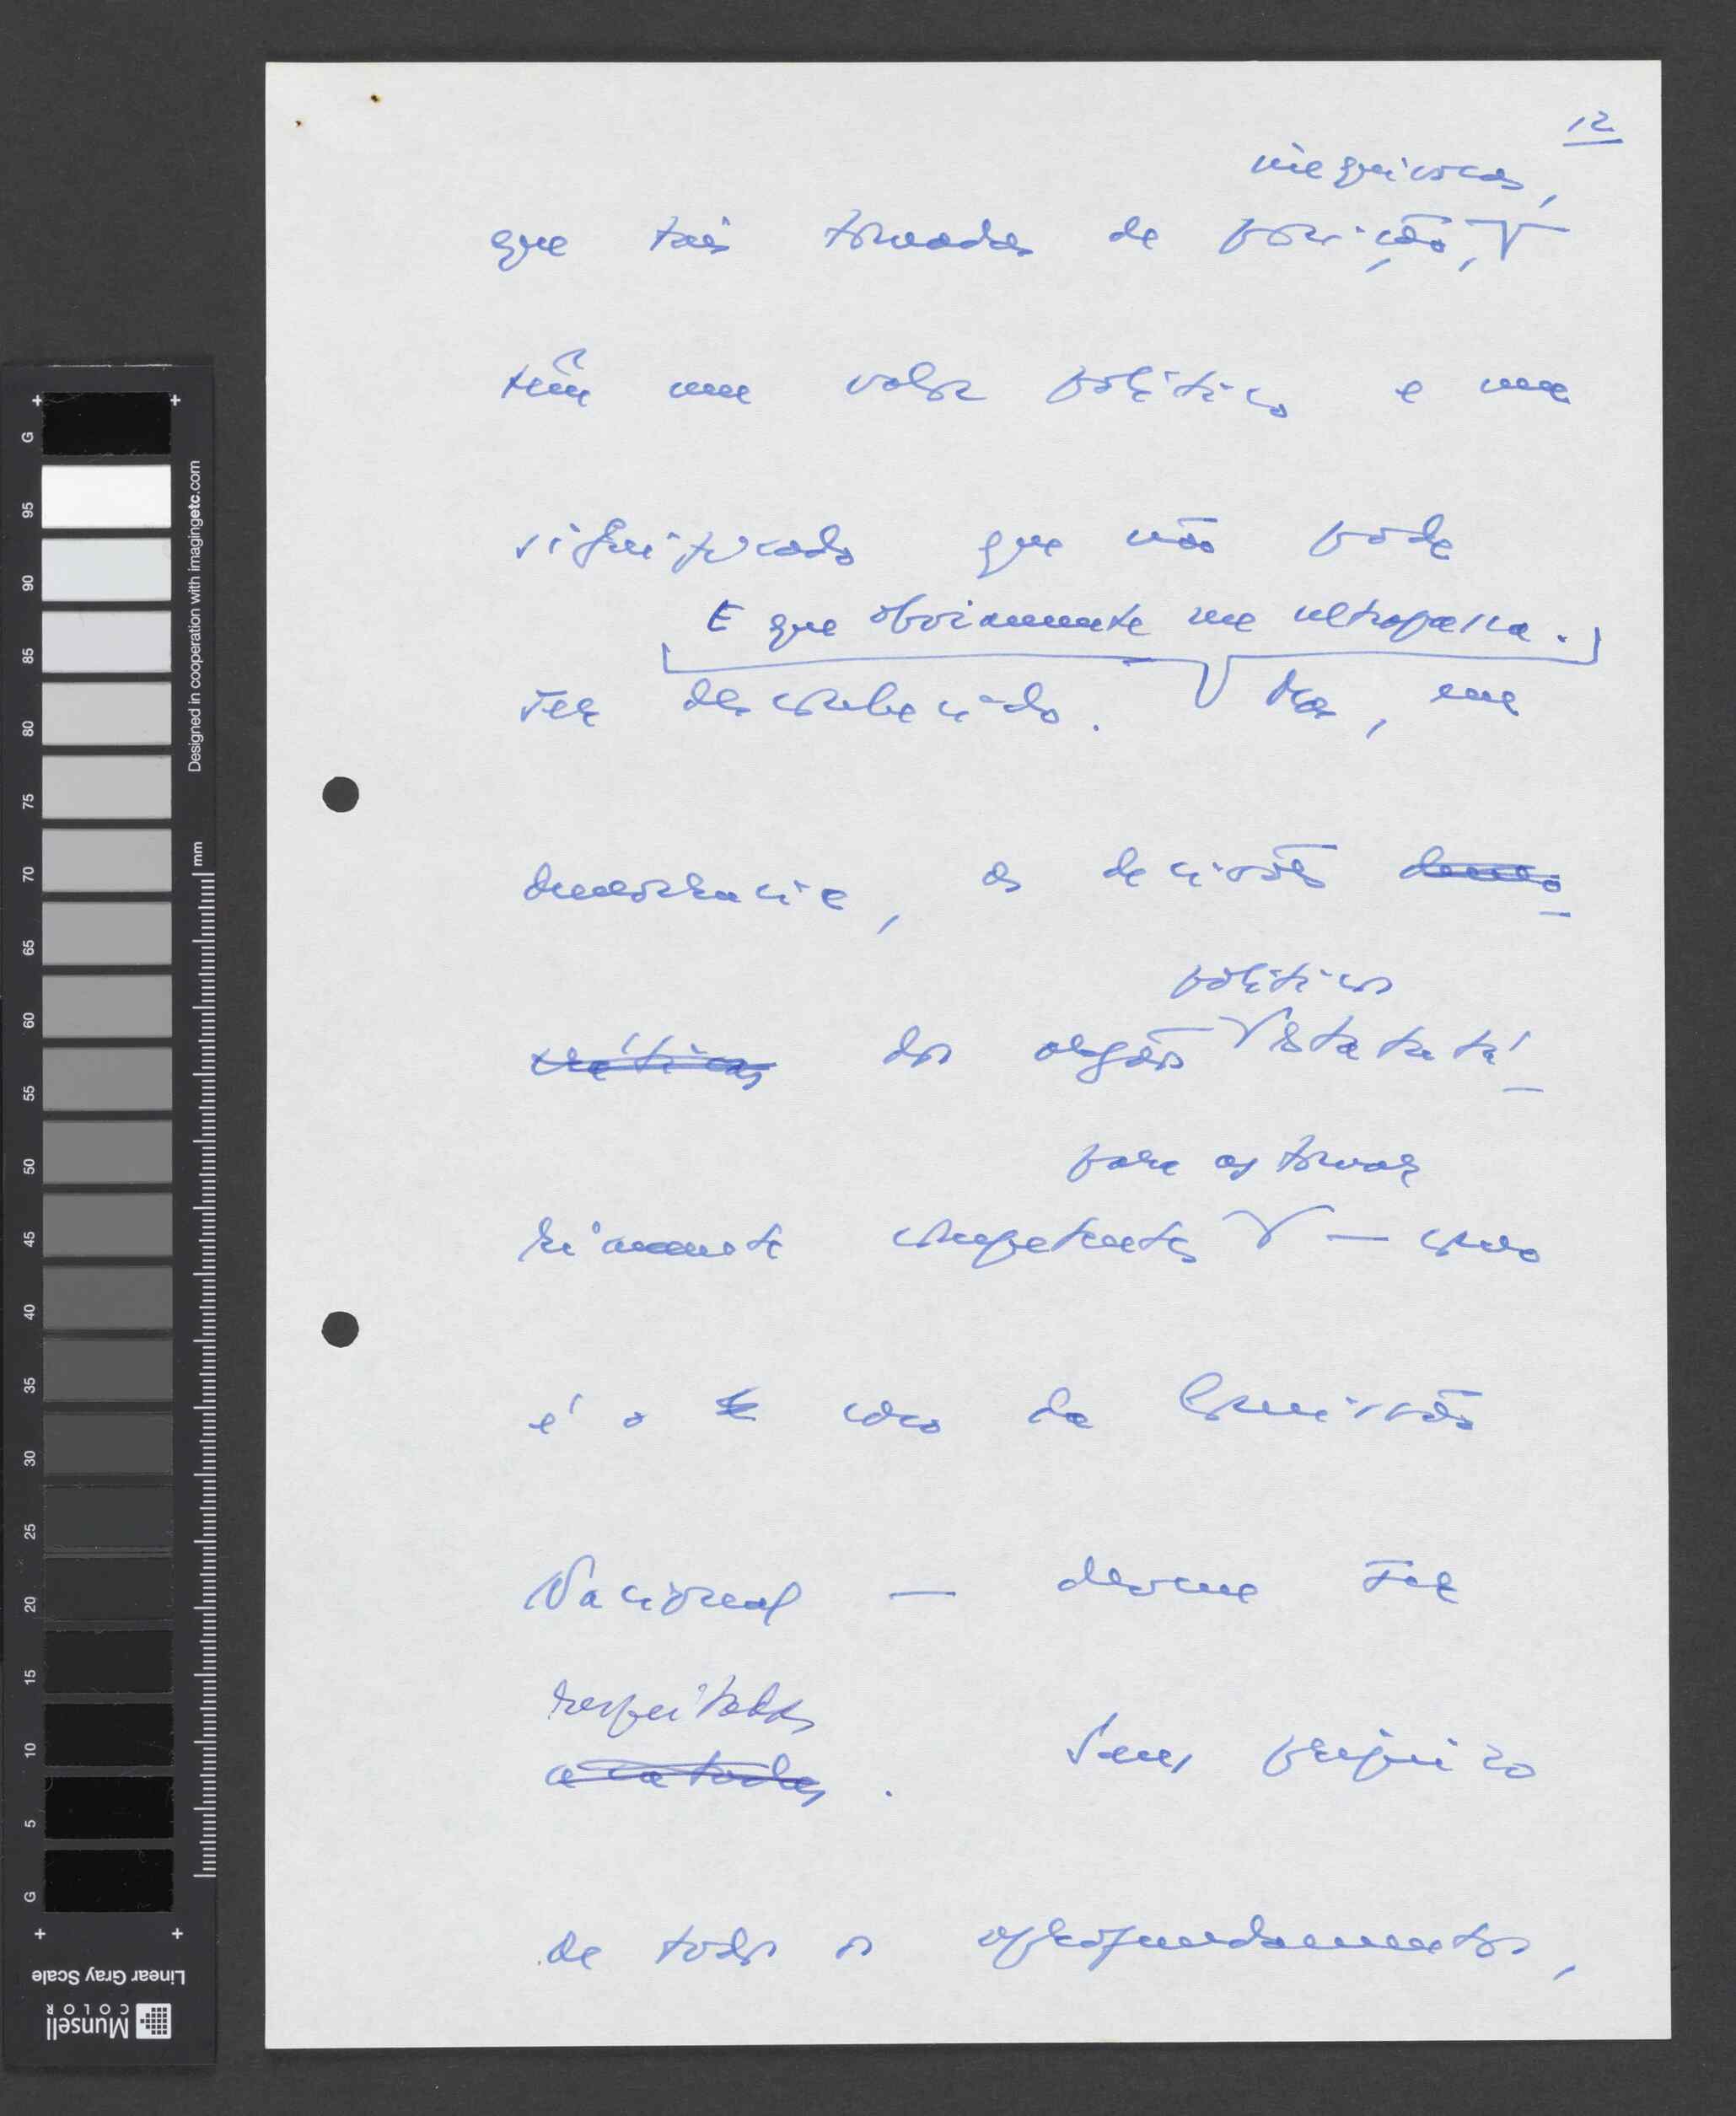 12
inequívocas,
que tais tomadas de posição,
têm um valor político e um
significado que não pode
E que obviamente me ultrapassa.
ser desconhecido. Mas, em
democracia, as decisões demo-
políticos
cráticas dos orgãos estatuta-
para as tomar
riamente competentes — como
é o caso da Comissão
Nacional — devem ser
respeitadas
acatadas. Sem prejuízo
de todos os aprofundamentos,
G
95
90
85
80
75
70
65
60
55
50
45
40
35
30
25
20
15
10
5
G
Designed in cooperation with imagingetc.com
mm
Linear Gray Scale
Munsell
COLOR